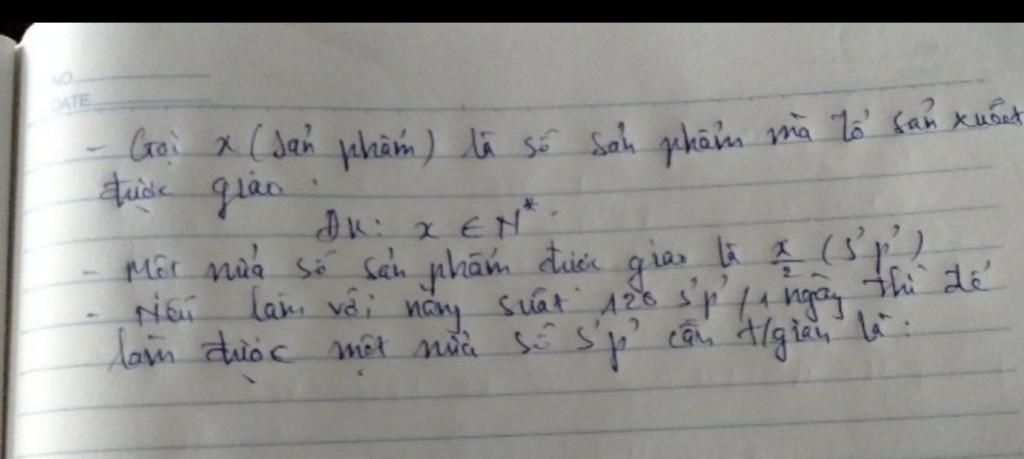 NO
DATE
- Gọi x (sản phẩm) là số sản phẩm mà tổ sản xuất
được giao.
ĐK: x ∈ N*.
- Một nửa số sản phẩm được giao là x/2 (s'p')
- Nếu làm với năng suất 120 s'p'/1 ngày thì để
làm được một nửa số s'p' cần t/gian là: